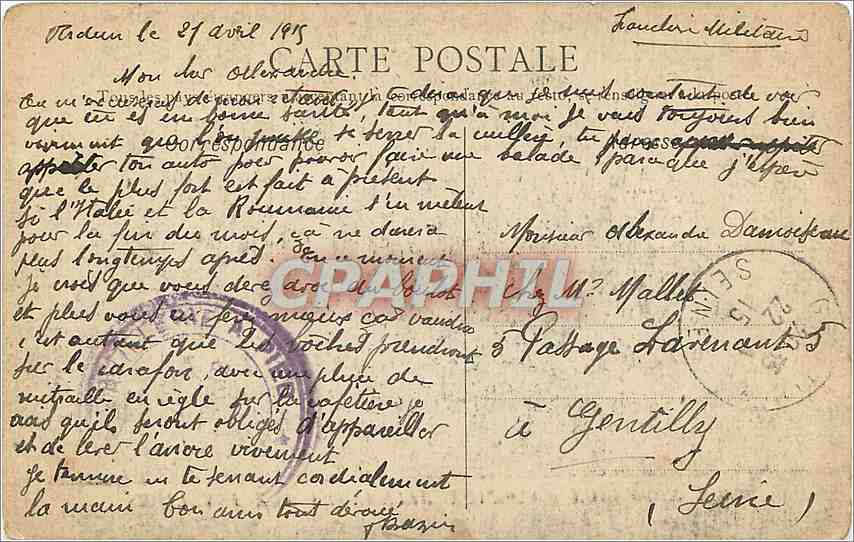 Verdun le 21 avril 1915
Franchise Militaire
CARTE POSTALE
Mon cher Alexandre.
Tous les pays étrangers n'acceptant pas la correspondance au recto, se renseigner à la poste
tu m'excuseras de mon retard, je suis content de voir
que tu es en bonne santé, tant qu'à moi je vais toujours bien
vivement que l'on puisse se serrer la cuillère, tu
Correspondance
Adresse
apprêter ton auto pour pouvoir faire une balade, parce que j'espère
que le plus fort est fait à présent
Si l'Italie et la Roumanie s'en mêlent
pour la fin du mois, ça ne durera
plus longtemps après. En ce moment
je crois que vous
et plus vous en ferez mieux ça vaudra
c'est autant que les boches prendront
sur le carafon, avec une pluie de
mitraille en règle sur la cafetière je
qu'ils seront obligés d'appareiller
et de lever l'ancre vivement
Je termine en te serrant cordialement
la main ton ami tout dévoué
Bazin
Monsieur Alexandre Damoiseau
Chez Mr Mallet
5 Passage Lavenant 5
à Gentilly
(Seine)
SEINE
22
15
CPAPHIL